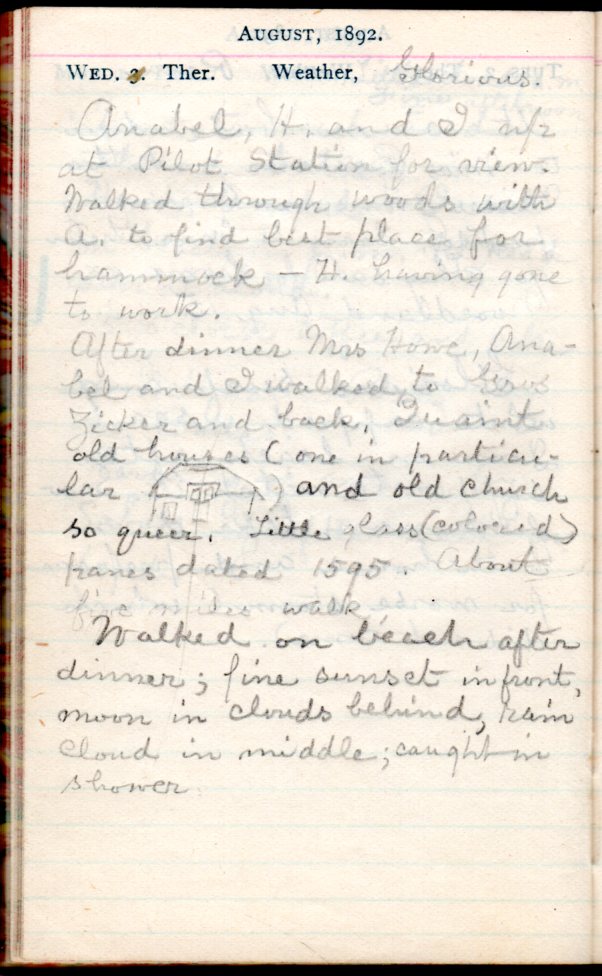 AUGUST, 1892.
WED. 3. Ther. Weather, Glorious.
Anabel, H. and I up
at Pilot Station for view.
Walked through woods with
A. to find best place for
hammock – H. having gone
to work.
After dinner Mrs Howe, Ana-
bel and I walked to Gros
Zicker and back. Quaint
old houses (one in particu-
lar ) and old church
so queer. Little glass (colored)
panes dated 1595. About
five miles walk
Walked on beach after
dinner; fine sunset in front,
moon in clouds behind, rain
cloud in middle; caught in
shower.